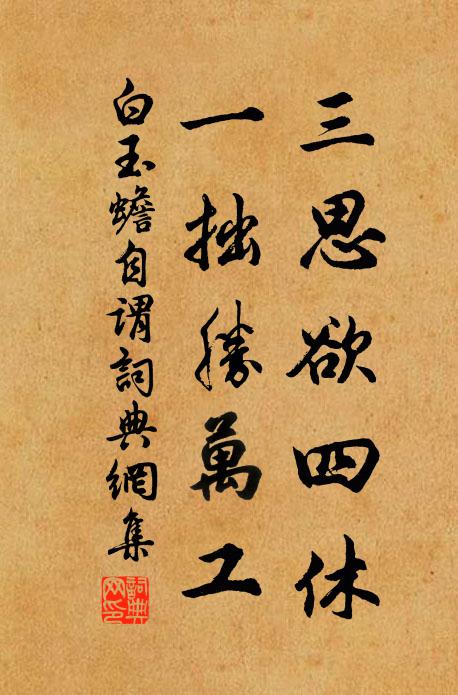 三思欲四休
一拙勝萬工
白玉蟾自谓詞典網集
詞典網印